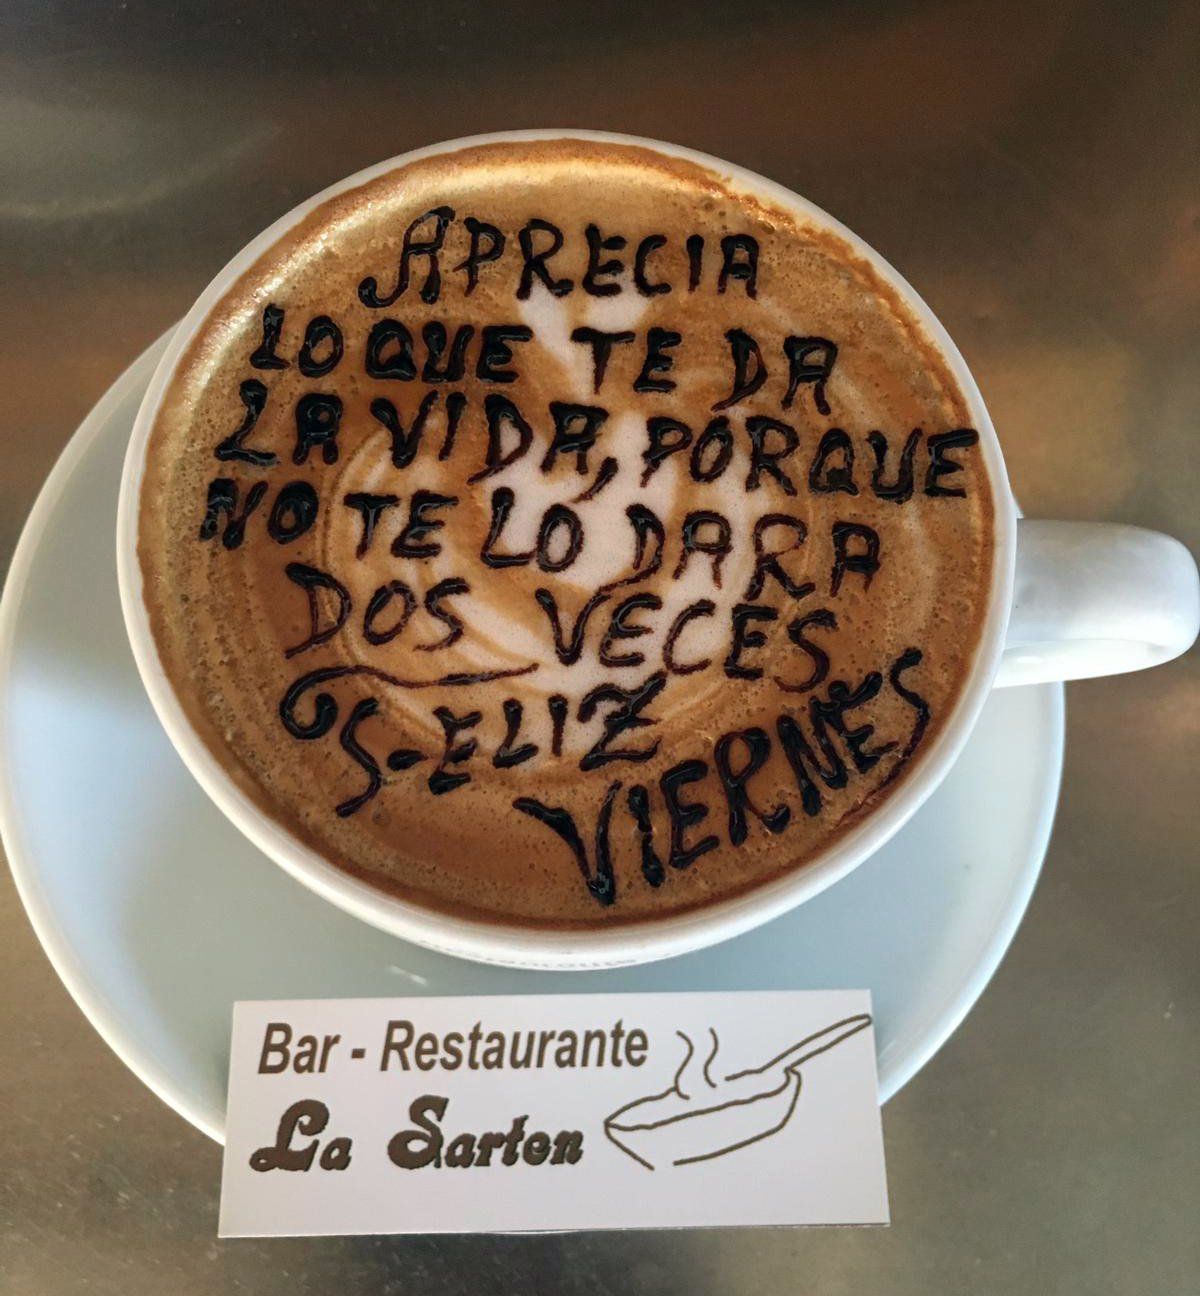 APRECIA
LO QUE TE DA
LA VIDA, PORQUE
NO TE LO DARA
DOS VECES
FELIZ
VIERNES
Bar - Restaurante
La Sarten